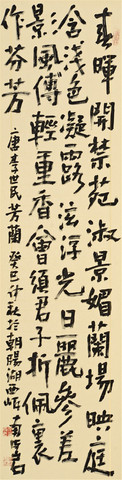 春暉開禁苑淑景媚蘭場映庭
含淺色凝露泫浮光日麗參差
景風傳輕重香會須君子折佩裏
作芬芳 唐李世民芳蘭 癸巳仲秋於朝陽湖西